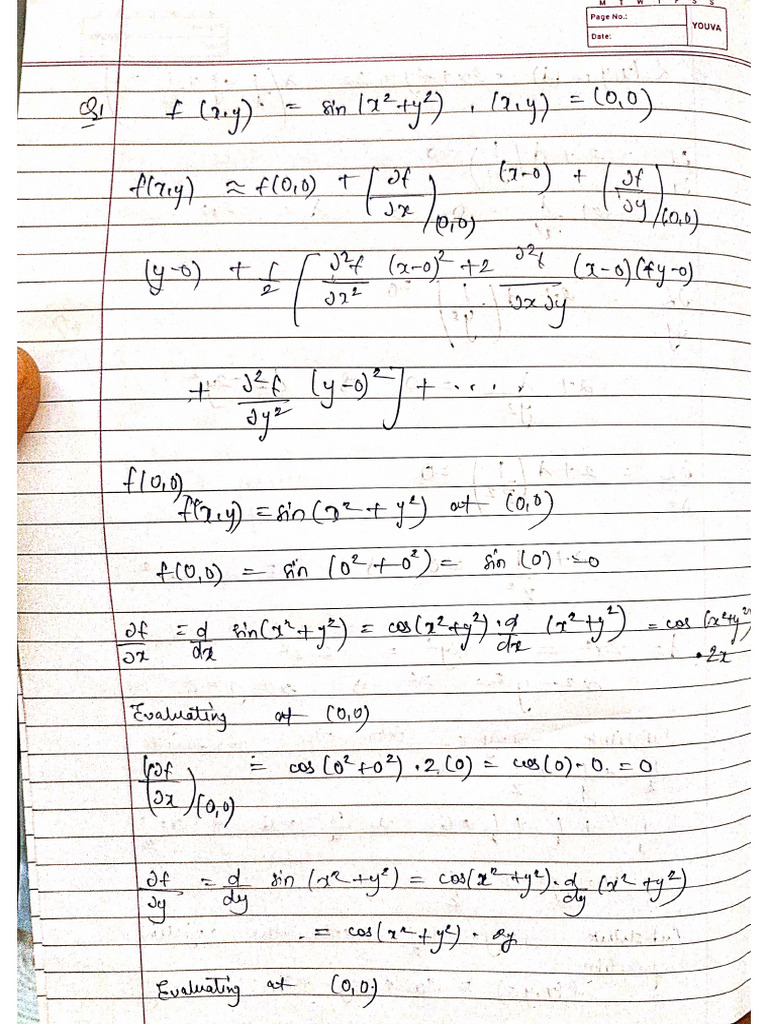 M T W T F S S
Page No.:
YOUVA
Date:
Q1 f (x,y) = sin (x²+y²) , (x,y) = (0,0)
f(x,y) ≈ f(0,0) + (∂f/∂x)(0,0) (x-0) + (∂f/∂y)(0,0)
(y-0) + 1/2 [ ∂²f/∂x² (x-0)² + 2 ∂²f/∂x∂y (x-0)(y-0)
+ ∂²f/∂y² (y-0)² ] + ....
f(0,0)
f(x,y) = sin(x² + y²) at (0,0)
f(0,0) = sin (0² + 0²) = sin (0) = 0
∂f/∂x = d/dx sin(x² + y²) = cos(x²+y²) · d/dx (x²+y²) = cos (x²+y²)
· 2x
Evaluating at (0,0)
(∂f/∂x)(0,0) = cos (0²+0²) · 2(0) = cos(0) · 0 = 0
∂f/∂y = d/dy sin (x²+y²) = cos(x²+y²) · d/dy (x²+y²)
= cos(x²+y²) · 2y
Evaluating at (0,0)